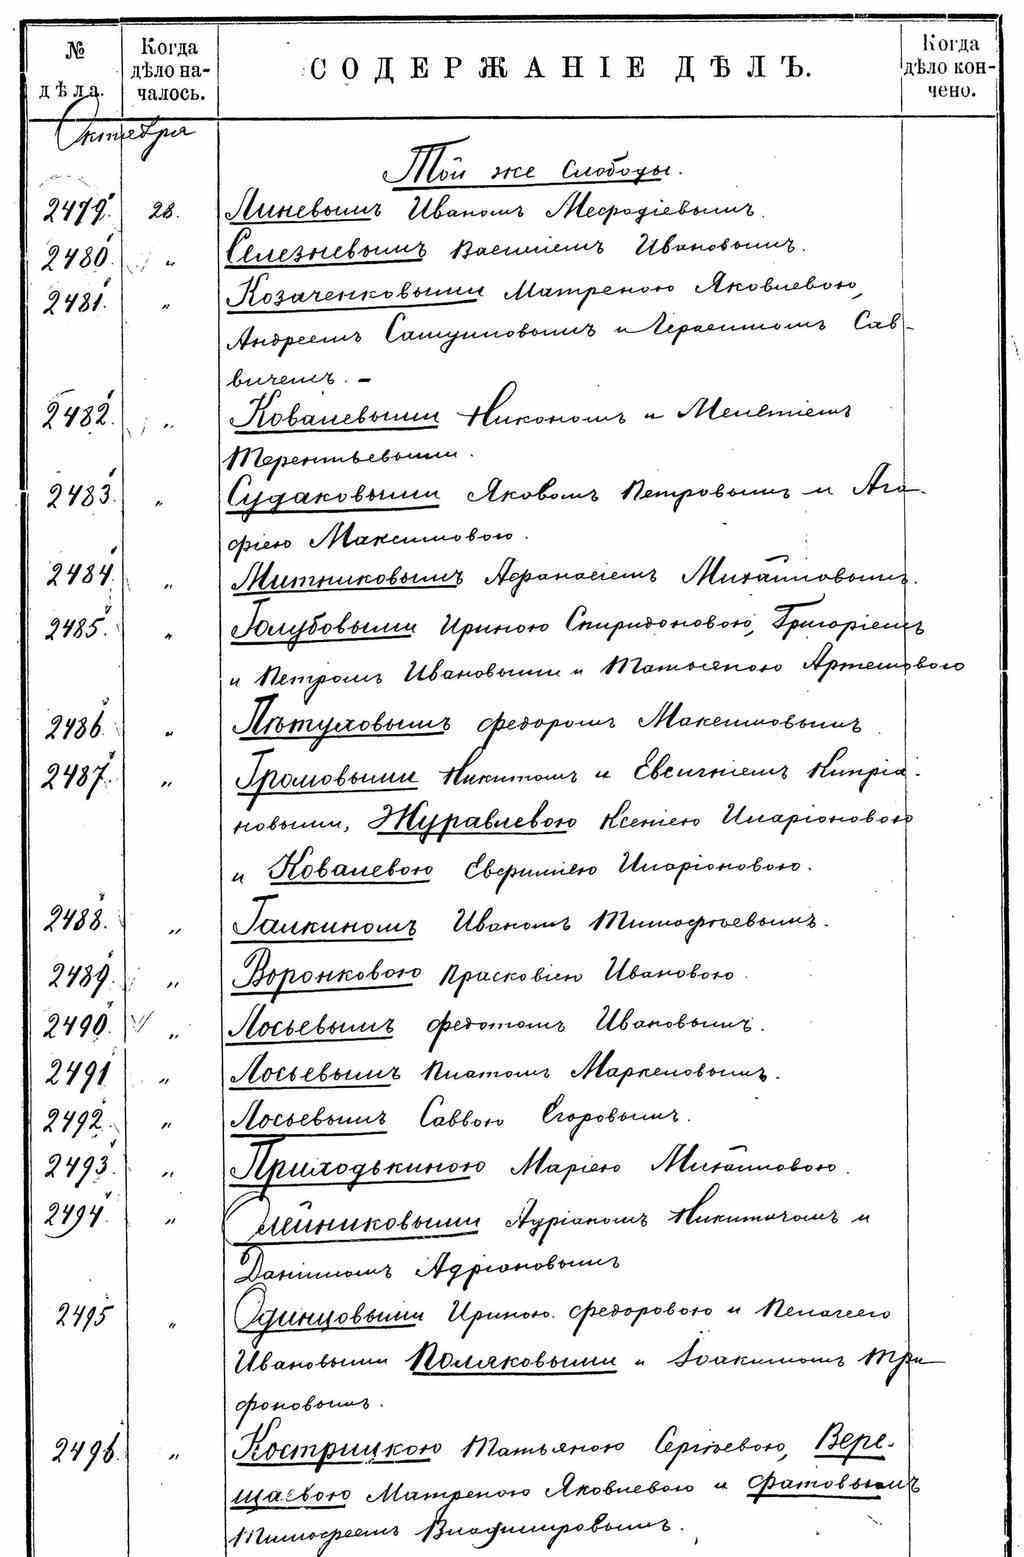 № дѣла.
Когда дѣло на-
чалось.
СОДЕРЖАНІЕ ДѢЛЪ.
Когда дѣло кон-
чено.
Октября
Той же Слободы.
2479. 28. Линевымъ Иваномъ Меѳодіевымъ.
2480 „ Селезневымъ Василіемъ Ивановымъ.
2481. „ Козаченковыми Матреною Яковлевою,
Андреемъ Самуиловымъ и Герасимомъ Сав-
вичемъ. –
2482. „ Ковалевыми Никономъ и Мелетіемъ
Терентьевыми.
2483. „ Судаковыми Яковомъ Петровымъ и Ага-
фіею Максимовою.
2484. „ Митниковымъ Афанасіемъ Михайловымъ.
2485. „ Голубовыми Ириною Спиридоновою, Григоріемъ
и Петромъ Ивановыми и Татьяною Артемовою
2486. „ Пѣтуховымъ Федоромъ Максимовымъ
2487. „ Громовыми Никитомъ и Евсигніемъ Кипріа-
новыми, Журавлевою Ксеніею Иларіоновою
и Ковалевою Евфиміею Иларіоновою.
2488. „ Галкиномъ Иваномъ Тимофѣевымъ.
2489. „ Воронковою Прасковіею Ивановою.
2490. „ Лосьевымъ Федотомъ Ивановымъ.
2491 „ Лосьевымъ Платомъ Маркеловымъ.
2492. „ Лосьевымъ Саввою Егоровымъ.
2493. „ Приходькиною Маріею Михайловою.
2494. „ Олейниковыми Адріаномъ Никитичомъ и
Даніиломъ Адріановымъ
2495 „ Одинцовыми Ириною Федоровою и Пелагеею
Ивановыми Поляковыми и Іоакимомъ Три-
фоновымъ.
2496. „ Кострицкою Татьяною Сергѣевою, Вере-
щаевою Матреною Яковлевою и Фатовымъ
Тимофеемъ Владимировымъ.